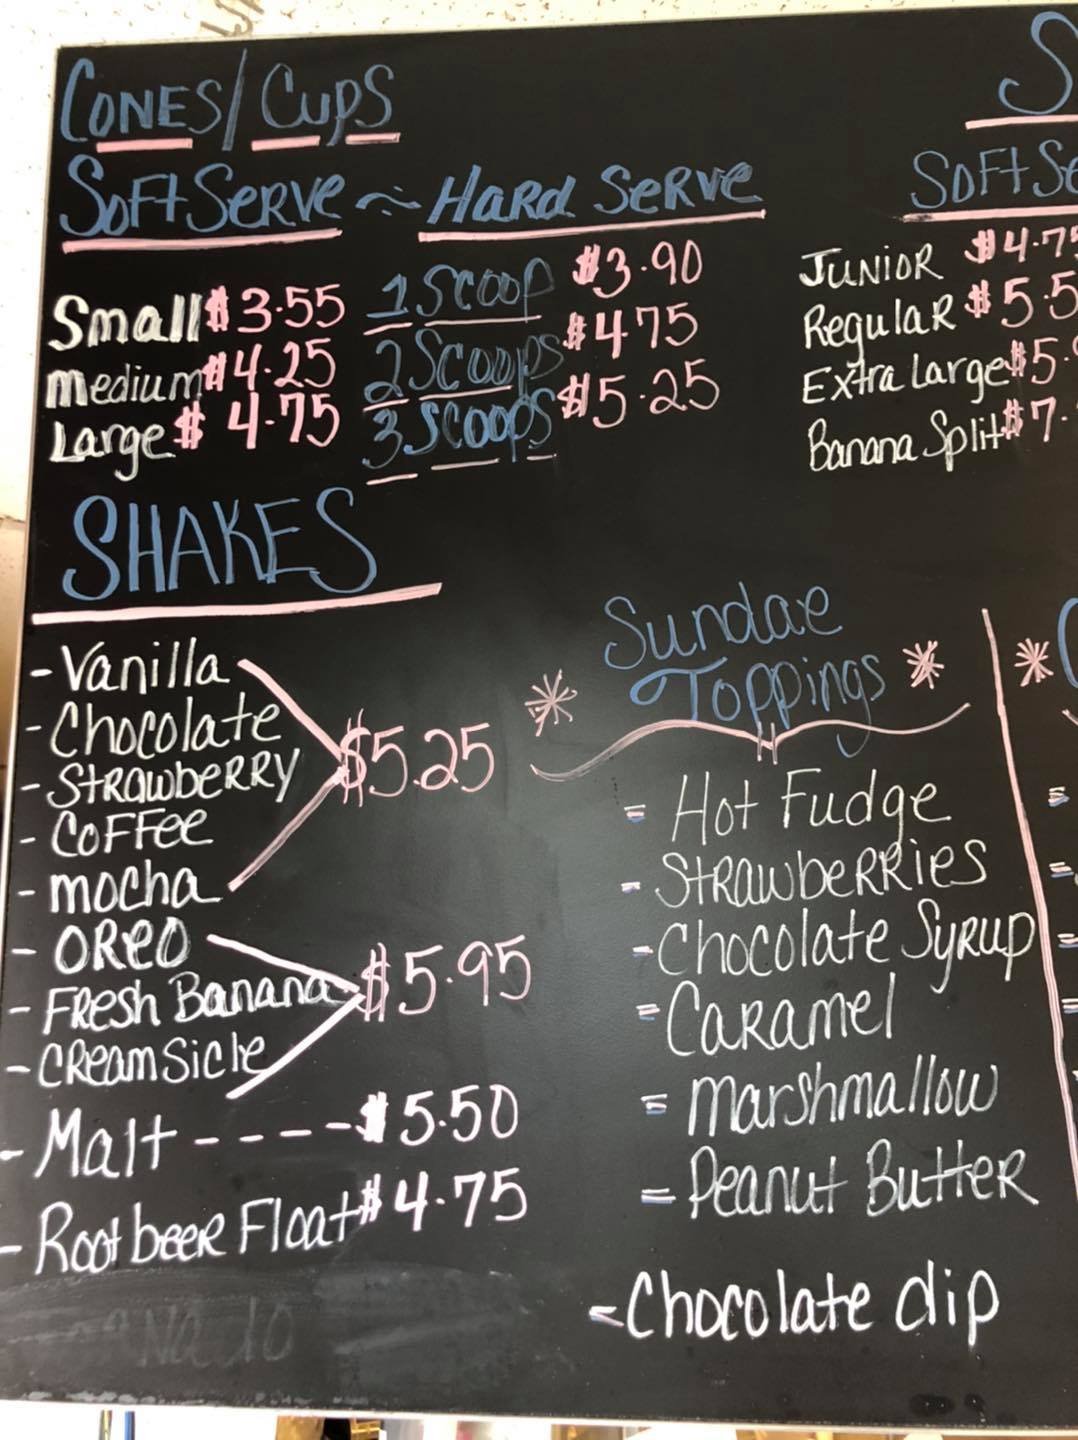 CONES/CUPS
SOFT SERVE ~ HARD SERVE
Small $3.55
Medium $4.25
Large $4.75
1 SCOOP $3.90
2 SCOOPS $4.75
3 SCOOPS $5.25
SOFT SE
JUNIOR $4.75
RegulaR $5.5
Extra Large $5.
Banana Split $7.
SHAKES
- Vanilla
- Chocolate
- STRawbeRRY
- COFFee
- mocha
$5.25
- OReo
- FResh Banana
- CReamsicle
$5.95
- Malt ---- $5.50
- Root beeR Float $4.75
* Sundae
Toppings *
= Hot Fudge
- STRawbeRRies
- Chocolate SyRup
= CaRamel
= maRshmallow
= Peanut ButteR
- Chocolate dip